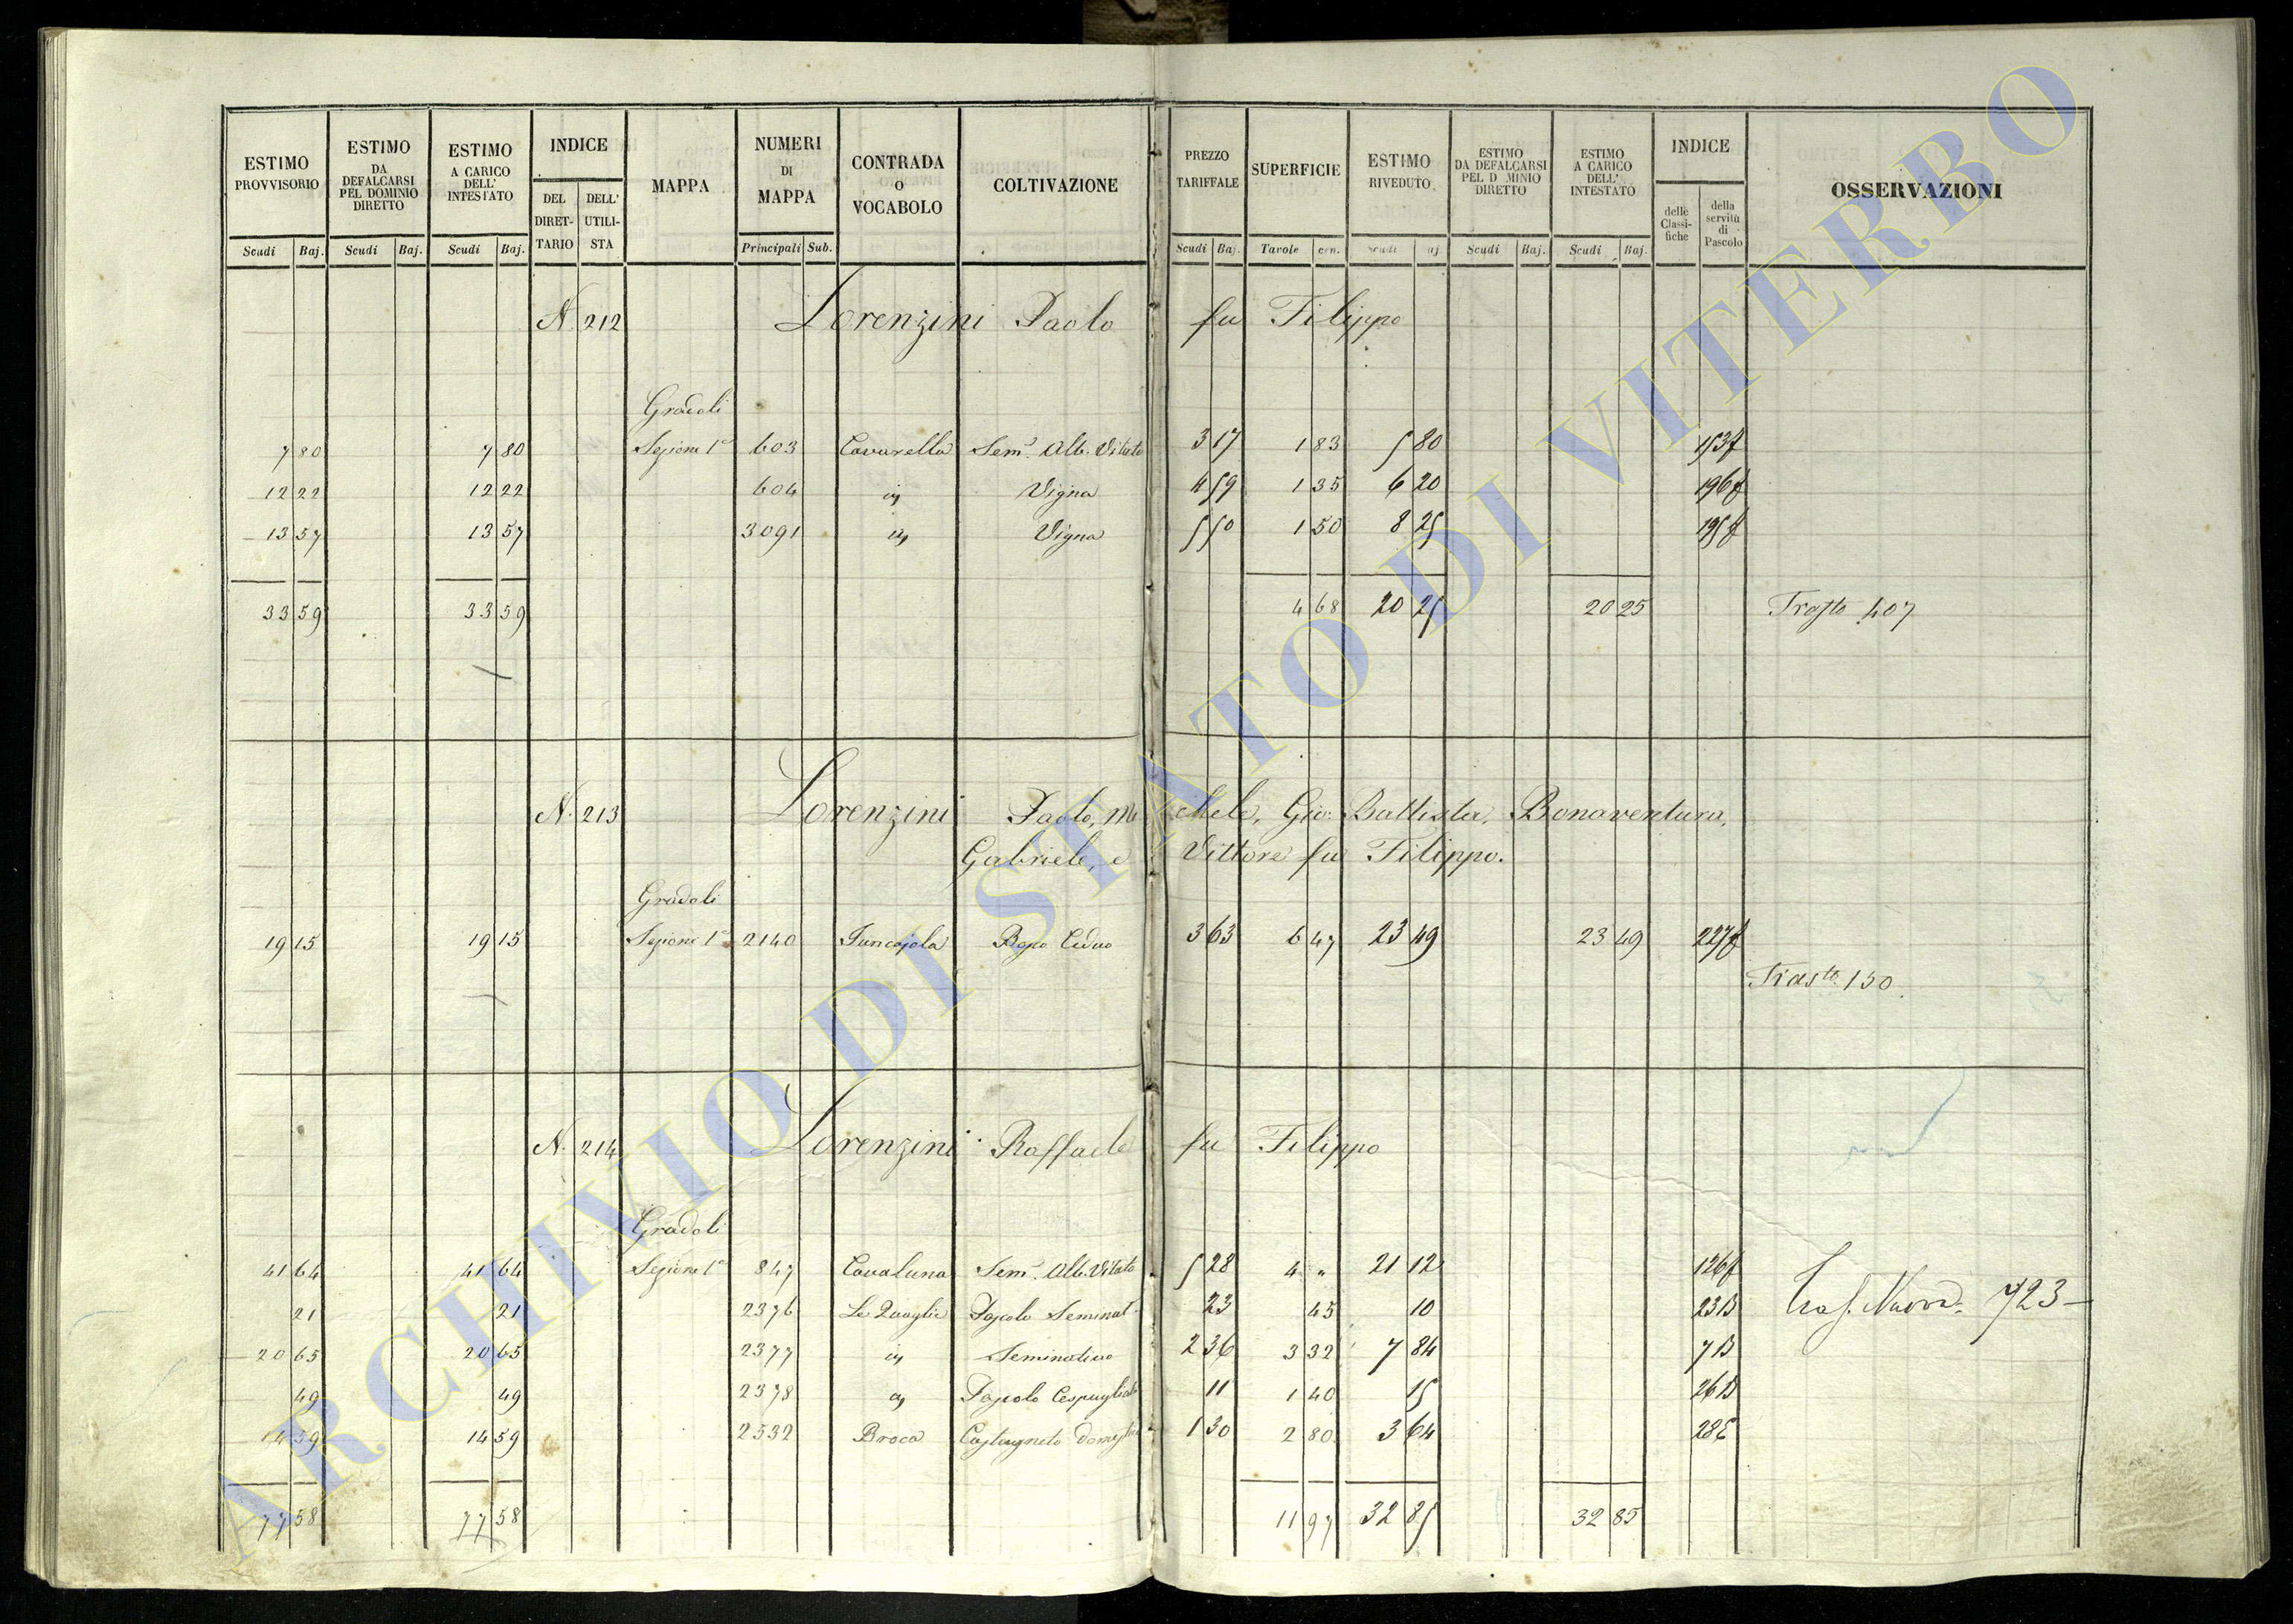 ESTIMO PROVVISORIO | ESTIMO DA DEFALCARSI PEL DOMINIO DIRETTO | ESTIMO A CARICO DELL' INTESTATO | INDICE | MAPPA | NUMERI DI MAPPA | CONTRADA O VOCABOLO | COLTIVAZIONE | PREZZO TARIFFALE | SUPERFICIE | ESTIMO RIVEDUTO | ESTIMO DA DEFALCARSI PEL D MINIO DIRETTO | ESTIMO A CARICO DELL' INTESTATO | INDICE | OSSERVAZIONI
DEL DIRETTARIO | DELL' UTILISTA | delle Classifiche | della servitù di Pascolo
Scudi | Baj. | Scudi | Baj. | Scudi | Baj. | Principali | Sub. | Scudi | Baj. | Tavole | cen. | Scudi | aj | Scudi | Baj. | Scudi | Baj.
N. 212 Lorenzini Paolo fu Filippo
Gradoli
7 80 | 7 80 | Sezione 1a | 603 | Cavarella | Sem.o Alb. Vitato | 3 17 | 1 83 | 5 80 | 153f
12 22 | 12 22 | 604 | Vigna | 4 59 | 1 35 | 6 20 | 196f
13 57 | 13 57 | 3091 | Vigna | 5 50 | 1 50 | 8 25 | 195f
33 59 | 33 59 | 4 68 | 20 25 | 20 25 | Trasto 407
N. 213 Lorenzini Paolo, Michele, Gio: Battista, Bonaventura,
Gabriele, e Vittore fu Filippo.
Gradoli
19 15 | 19 15 | Sezione 1a | 2140 | Bosco Ceduo | 3 63 | 6 47 | 23 49 | 23 49 | 227f
Trasto 150.
N. 214 Lorenzini Raffaele fu Filippo
Gradoli
41 64 | 41 64 | Sezione 1a | 847 | Cavaluna | Sem.o Alb. Vitato | 5 28 | 4 " | 21 12 | 126f
21 | 21 | 2376 | Le Quaglie | Pascolo Seminat. | 23 | 45 | 10 | 23B | 723
20 65 | 20 65 | 2377 | Seminativo | 2 36 | 3 32 | 7 84 | 7B
49 | 49 | 2378 | Pascolo Cespugliato | 11 | 1 40 | 15 | 26B
14 59 | 14 59 | 2532 | Broca | Castagneto Domestico | 1 30 | 2 80 | 3 64 | 28E
77 58 | 77 58 | 11 97 | 32 85 | 32 85
ARCHIVIO DI STATO DI VITERBO